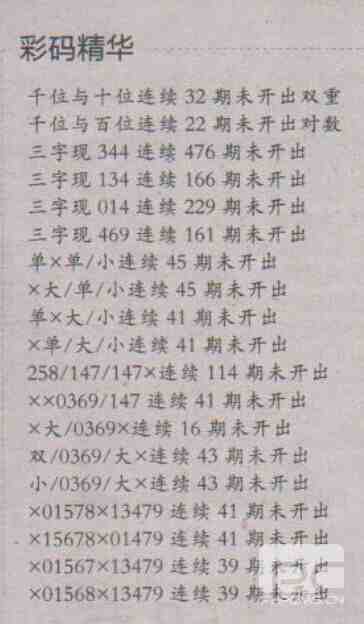 彩码精华
千位与十位连续 32 期未开出双重
千位与百位连续 22 期未开出对数
三字现 344 连续 476 期未开出
三字现 134 连续 166 期未开出
三字现 014 连续 229 期未开出
三字现 469 连续 161 期未开出
单×单/小连续 45 期未开出
×大/单/小连续 45 期未开出
单×大/小连续 41 期未开出
×单/大/小连续 41 期未开出
258/147/147×连续 114 期未开出
××0369/147 连续 41 期未开出
×大/0369×连续 16 期未开出
双/0369/大×连续 43 期未开出
小/0369/大×连续 43 期未开出
×01578×13479 连续 41 期未开出
×15678×01479 连续 41 期未开出
×01567×13479 连续 39 期未开出
×01568×13479 连续 39 期未开出